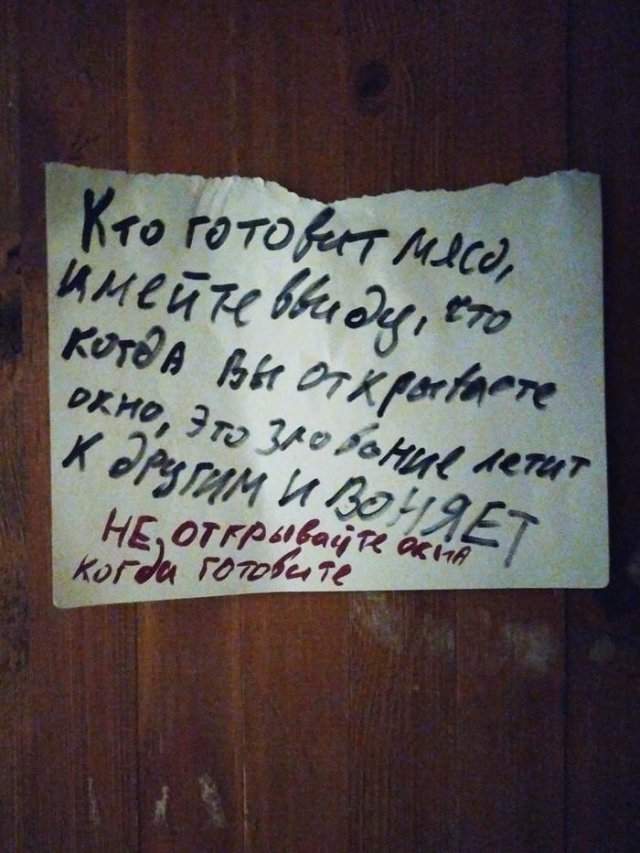 Кто готовит мясо,
имейте ввиду, что
когда вы открываете
окно, это зловоние летит
к другим и ВОНЯЕТ
НЕ открывайте окна
когда готовите